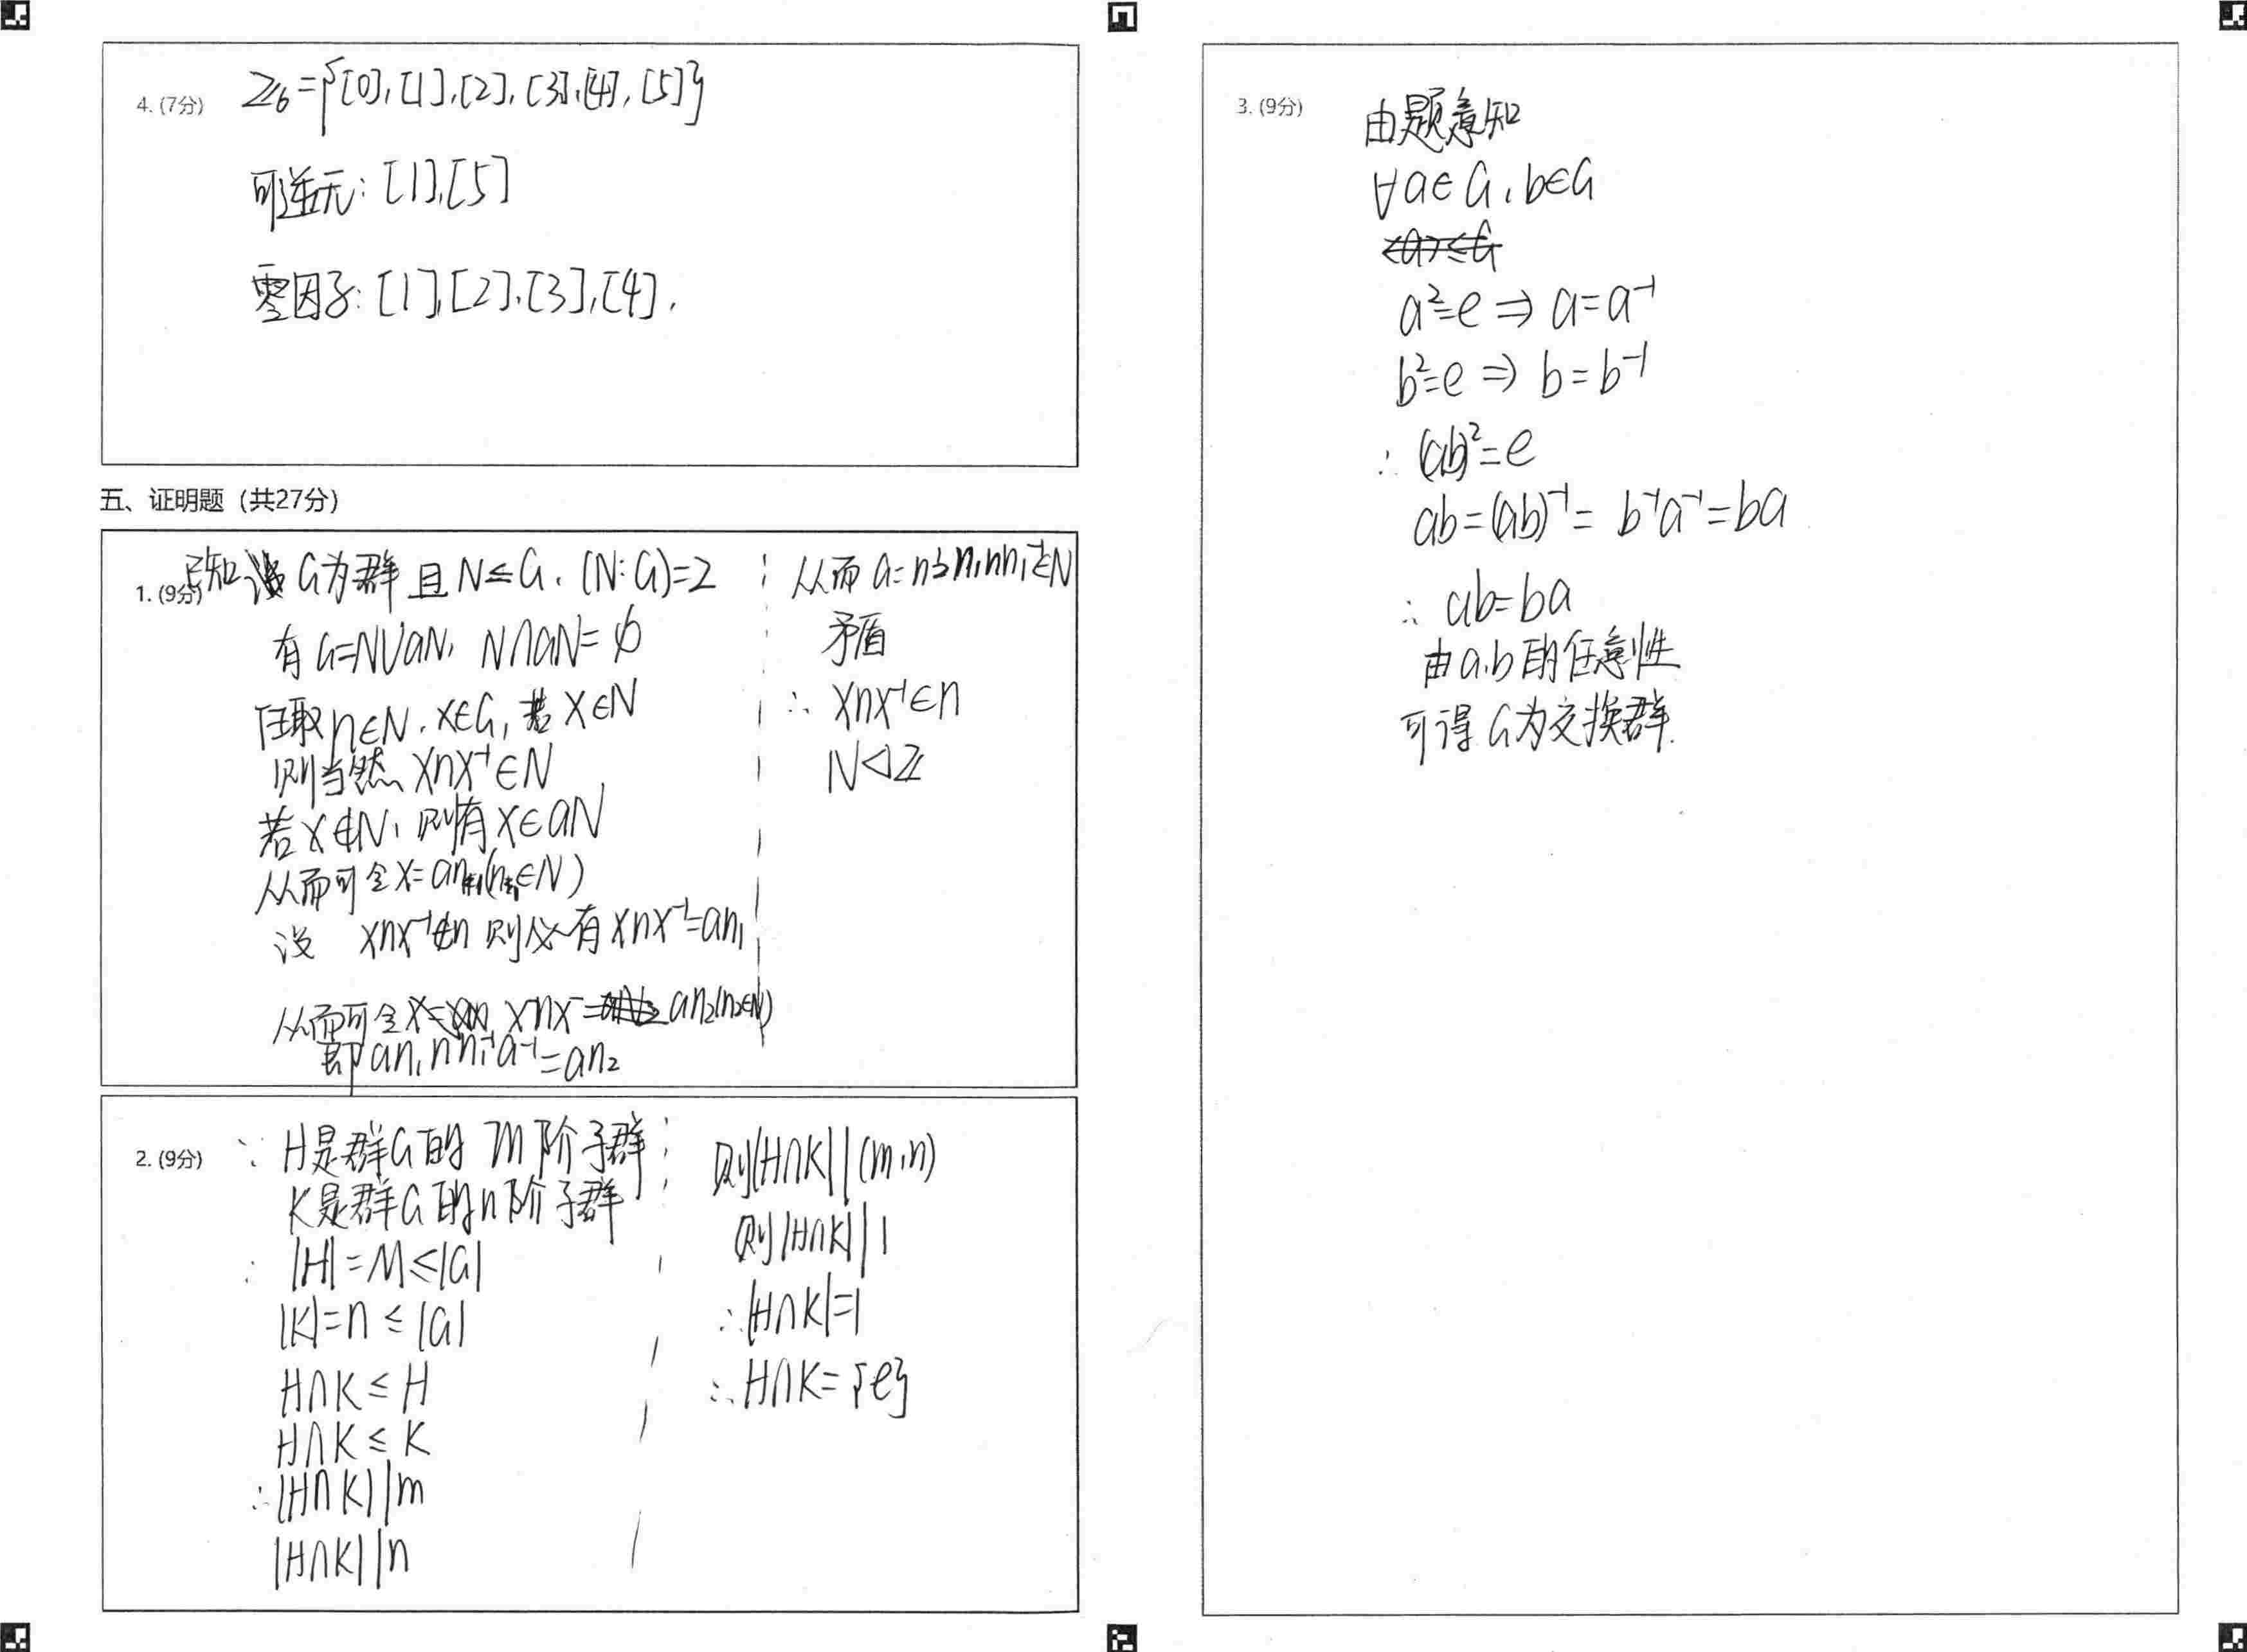 4. (7分)
Z₆={[0],[1],[2],[3],[4],[5]}
可逆元: [1],[5]
零因子: [1],[2],[3],[4],
五、证明题（共27分）
1. (9分)
已知 G为群且N≤G, (N:G)=2
有 G=N∪aN, N∩aN=∅
任取n∈N, x∈G, 若x∈N
则当然 xnx⁻¹∈N
若x∉N, 则有x∈aN
从而可令x=an₁(n₁∈N)
设 xnx⁻¹∉n 则必有xnx⁻¹=an₁
从而可令 xnx⁻=an₂(n₂∈N)
即an₁nn₁⁻¹a⁻¹=an₂
从而 a=n₂⁻¹n₁nn₁⁻¹∈N
矛盾
∴ xnx⁻¹∈n
N⊲Z
2. (9分)
∵ H是群G的m阶子群
K是群G的n阶子群
∴ |H|=m≤|G|
|K|=n≤|G|
H∩K≤H
H∩K≤K
∴|H∩K||m
|H∩K||n
则|H∩K||(m,n)
则|H∩K||1
∴|H∩K|=1
∴H∩K={e}
3. (9分)
由题意知
∀a∈G, b∈G
<a>≤G
a²=e⇒a=a⁻¹
b²=e⇒b=b⁻¹
∴ (ab)²=e
ab=(ab)⁻¹=b⁻¹a⁻¹=ba
∴ ab=ba
由a,b的任意性
可得G为交换群.